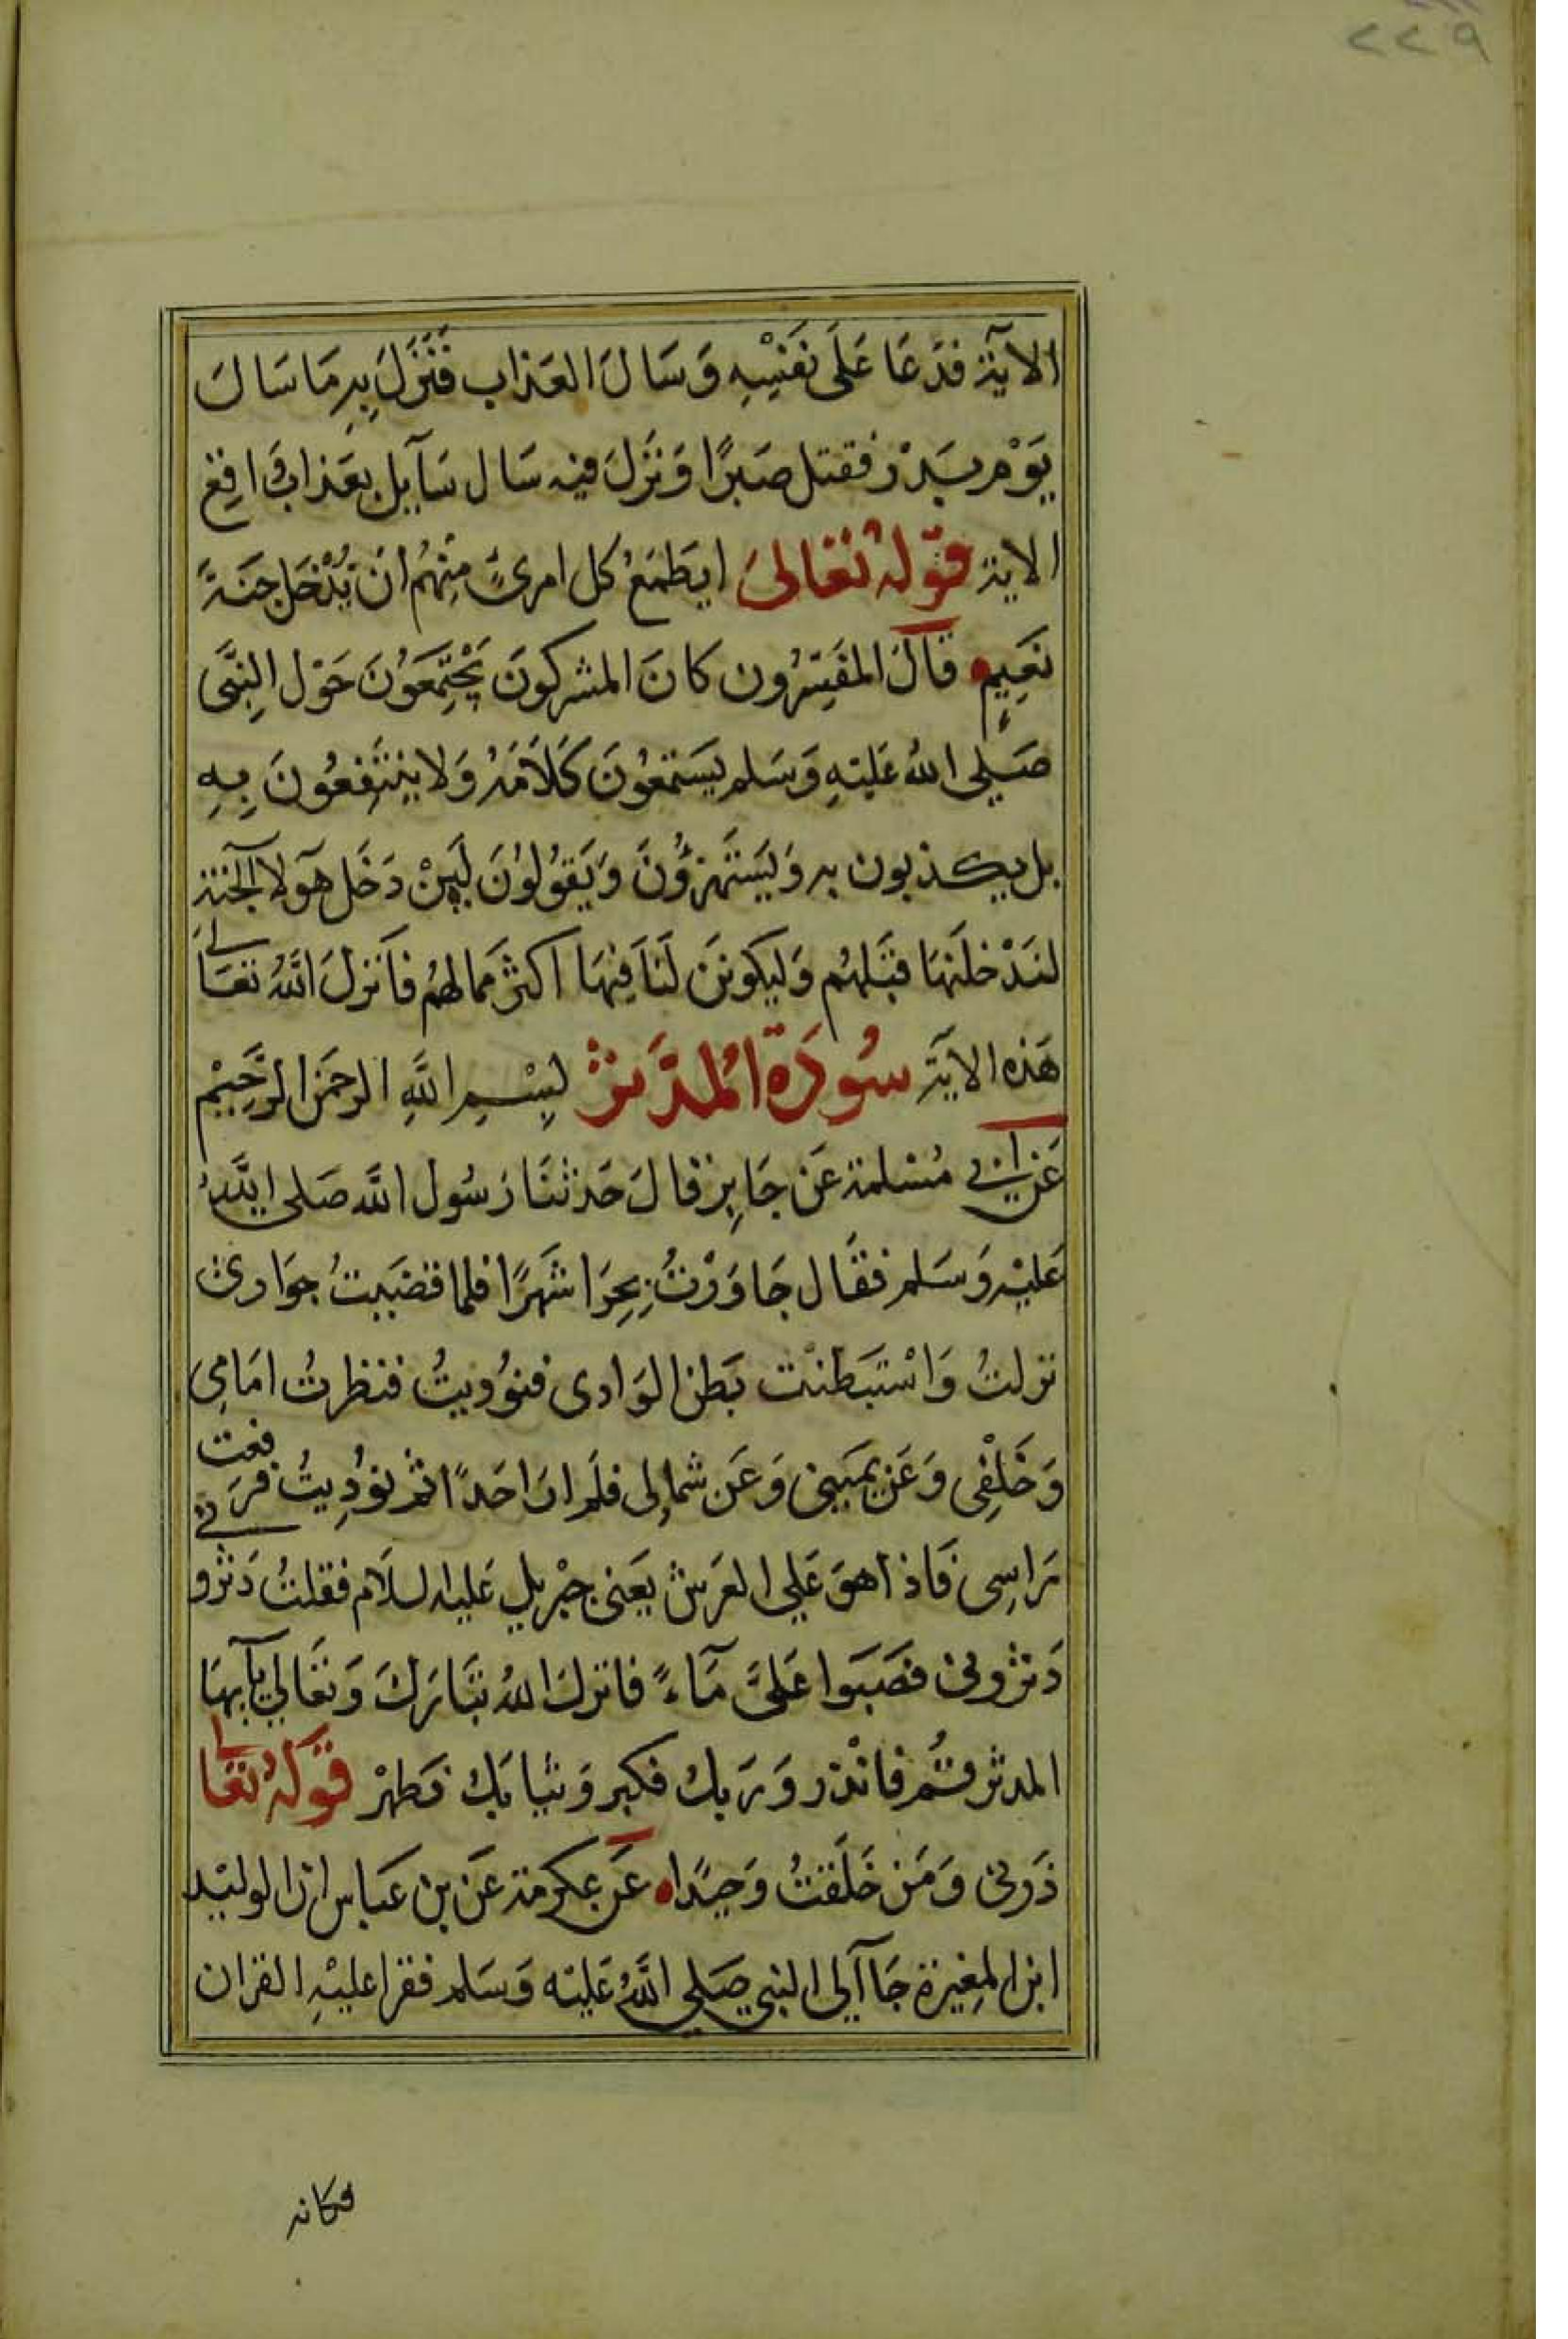 ٢٢٩
الآية فدَعَا عَلَى نفسِهِ وَسَالَ العَذاب فَنَزَلَ بِهِ مَا سَالَ
يَوْم بَدْر فقتل صَبرًا وَنَزَلَ فيه سَال سَآيل بعَذاب وَاقِع
الاية قوله تعَالىَ ايَطمَعُ كل امرئٍ مِنهُم ان يُدْخَل جَنَةَ
نعَيِمٍ قالَ المفَسِرُون كانَ المشركونَ يَجْتَمِعَوُنَ حَوْل النِبَّى
صَلِى الله عَليَهِ وَسَلم يسَتمعوُنَ كَلاَمَهُ وَلا ينتَفِعُونَ بِهِ
بل يكذبون به وَليَسَتَهزؤُنَ وَيَقوُلوُنَ لَيِنْ دَخَل هَولآ الجَنة
لنَدْخلَنهَا قبَلهُم وَليكونَن لَنَا فِيهَا اكثرَ ممالهُم فاَنزلَ اللهُ تعَالى
هَذه الآيَة سُورَة المُدَّثر بِسْمِ اللَّهِ الرحمَن الرَّحِيْم
عَن ابي مُسْلمة عَن جَابِر قالَ حَدثنَا رَسُول اللَّه صَلى اللَّهُ
عَليْه وَسَلم فقَال جَاوَرْتُ بِحِرَا شَهرًا فلما قضَيتُ جوَارى
نزلتُ وَاسْتبَطنْت بَطن الوَادى فنوُديتُ فنظرتُ امَامِى
وَخَلْفِى وَعَن يمَينى وَعَن شمالِى فلَم ارَ احَدًا ثم نوُدِيتُ فرَفعت
رَاسِى فَاذا هوَ عَلي العَرش فى يَعنى جبْريل عَليه السلَام فقلتُ دَثرو
دَثرونى فصَبوا عَلىَّ مَآءً فانزلَ اللهُ تبَارَكَ وَتعَالي يآيهَا
المدثر قُم فانْذر وَرَبكَ فكبر وَثيابَكَ فطهرْ قوَلهُ تعَالى
ذَرنى وَمَن خَلَقتُ وَحيَدًاه عَن عِكرمَة عَن بن عَباس ان الوليْد
ابن المغِيرة جَآ الى النبي صَلي اللَّهُ عَليَه وَسَلم فقرا عليْهِ القران
فكانه